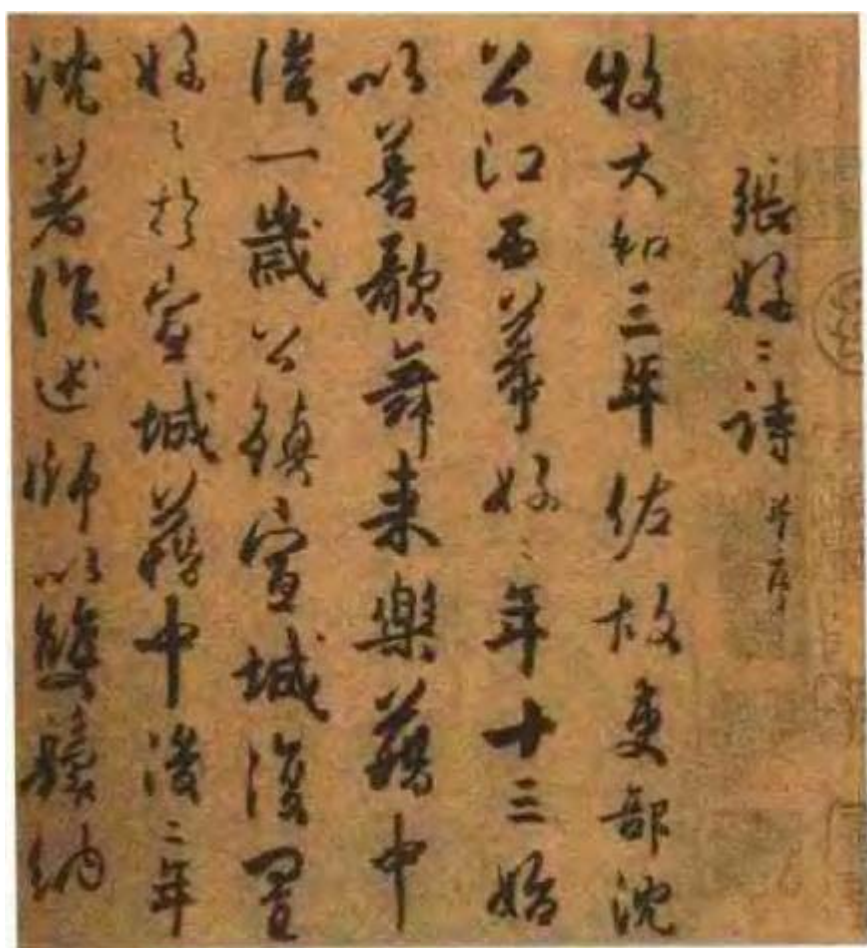 張好〻詩 并序
牧大和三年佐故吏部沈
公江西幕好〻年十三始
以善歌舞來樂籍中
後一歲公鎮宣城復置
好〻於宣城籍中後二年
沈著作述師以雙鬟納